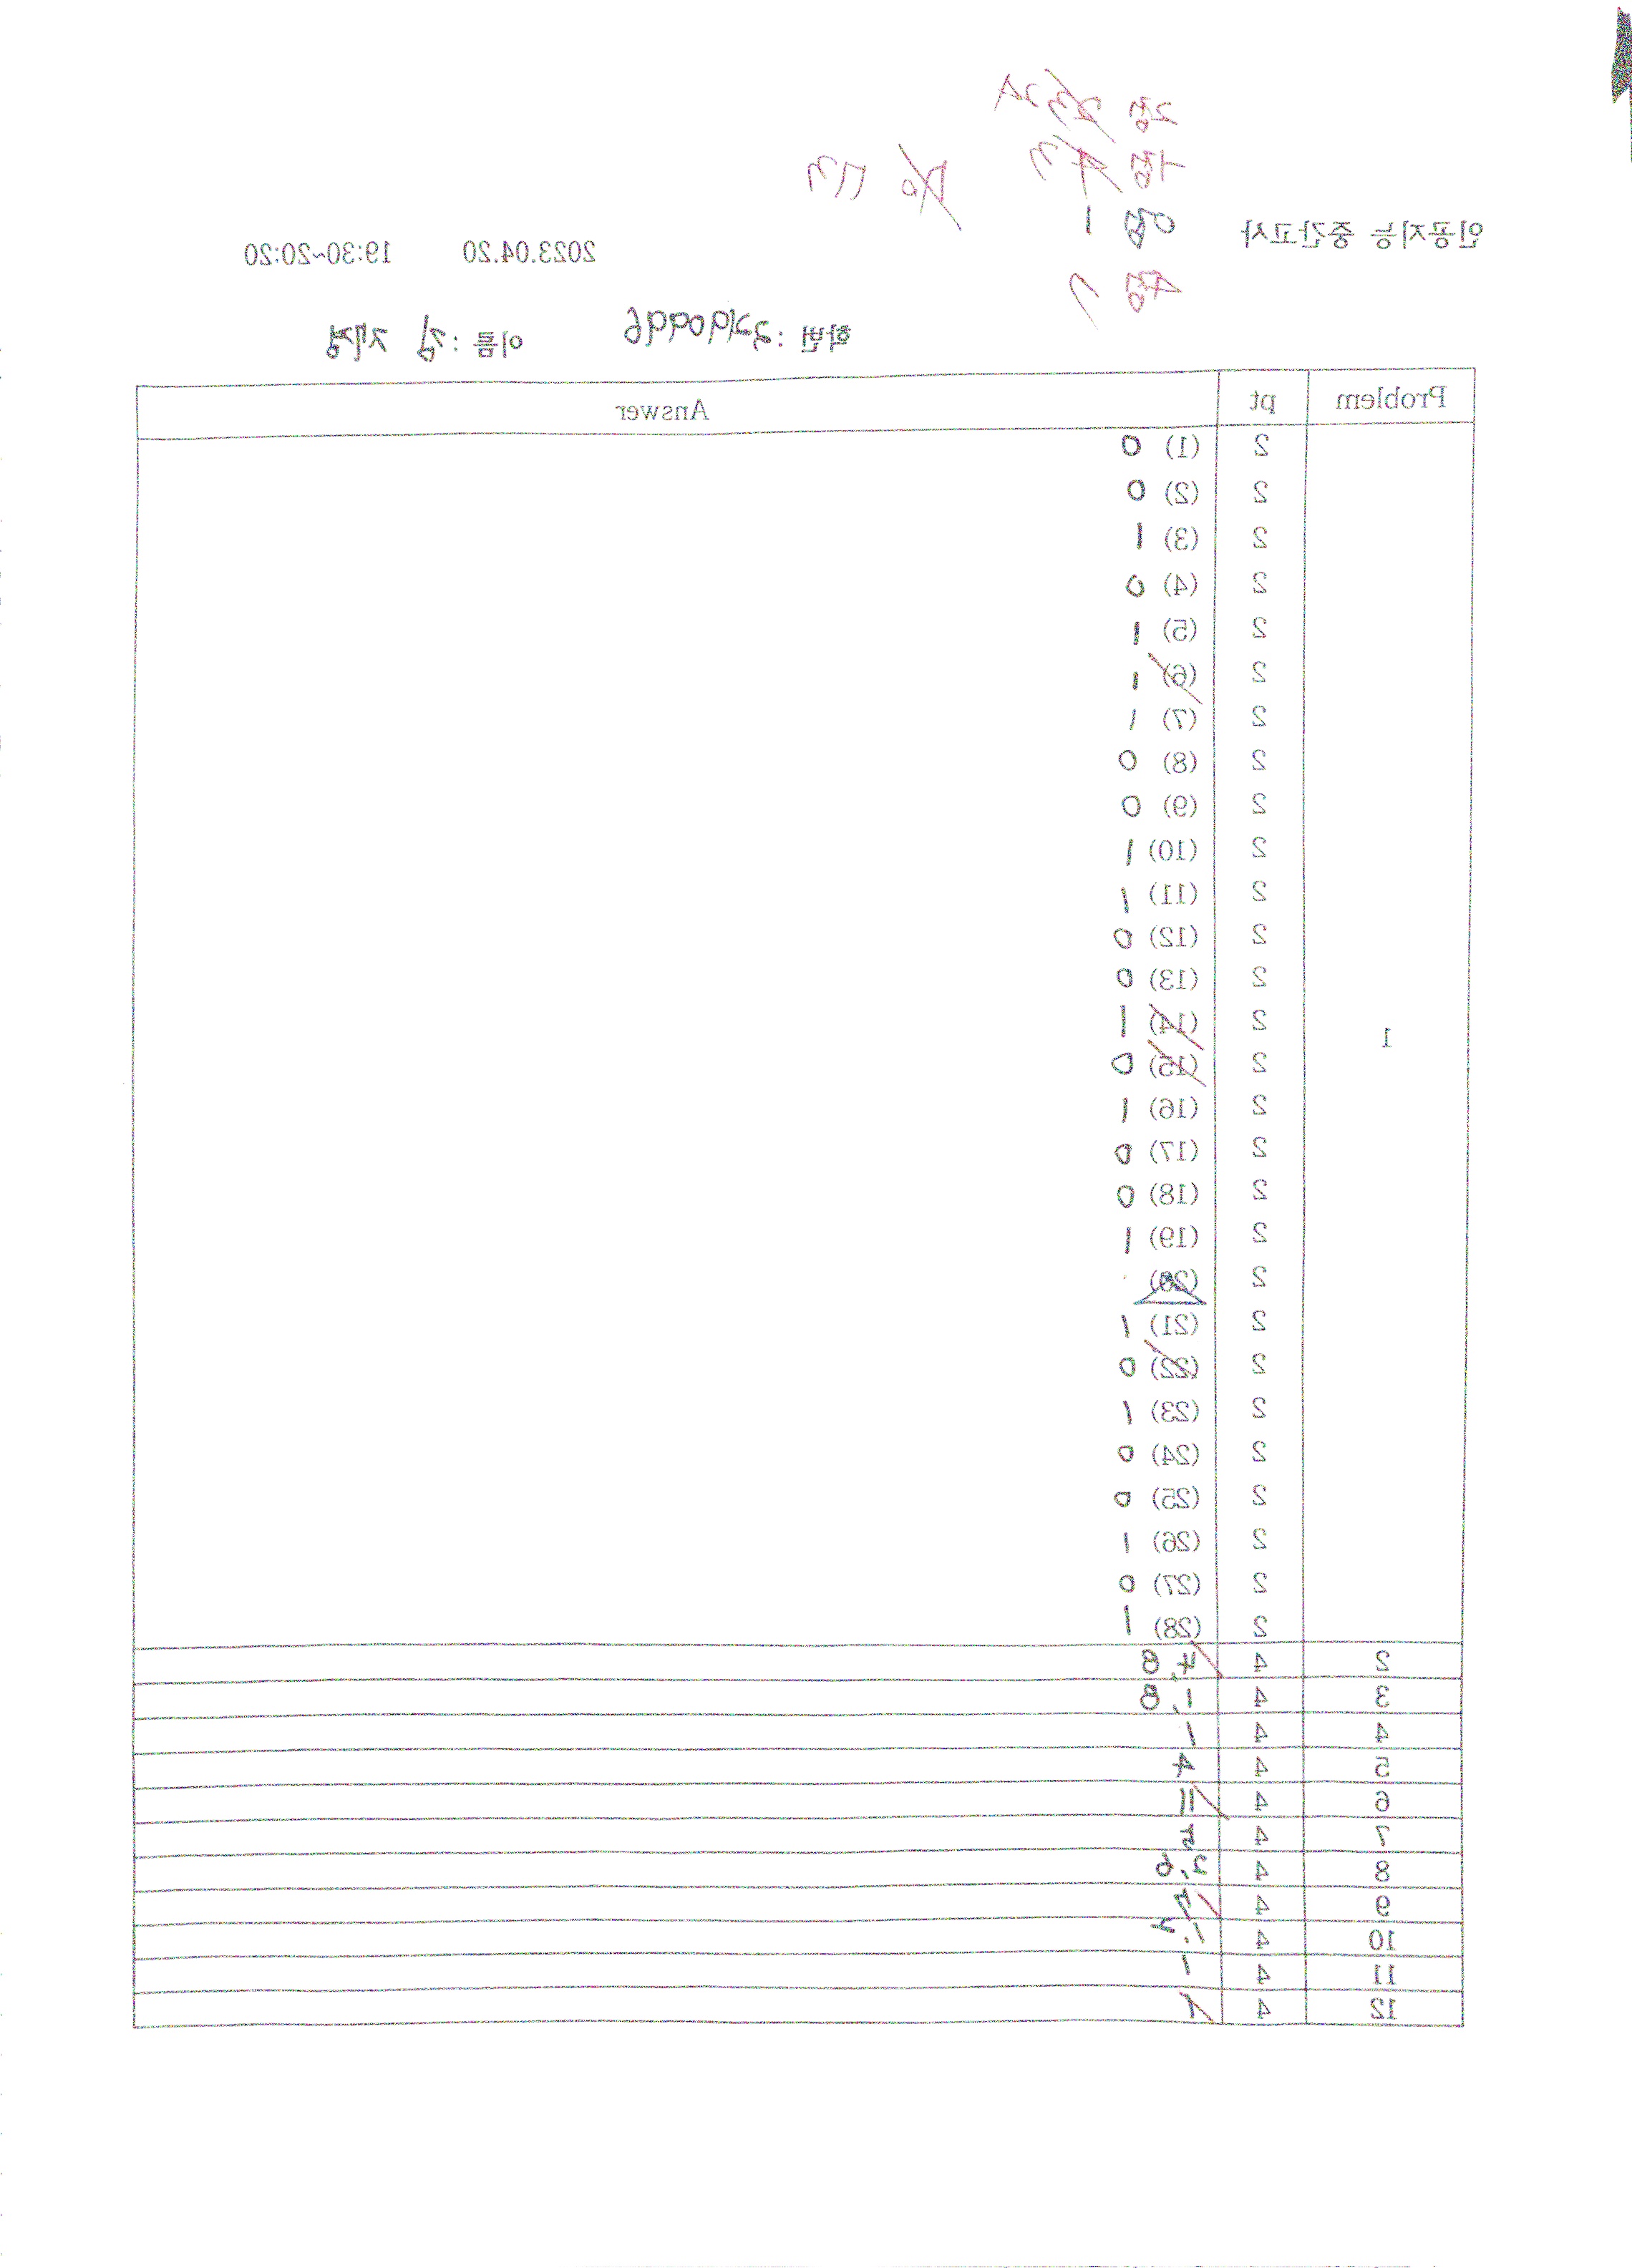 2점 23 24
1점 4 3 70 73
0점 1
4점 7
인공지능 중간고사 2023.04.20 19:30~20:20
학번 : 이름 : 김재정
Problem pt Answer
1
2 (1) 0
2 (2) 0
2 (3) 1
2 (4) 0
2 (5) 1
2 (6) 1
2 (7) 1
2 (8) 0
2 (9) 0
2 (10) 1
2 (11) 1
2 (12) 0
2 (13) 0
2 (14) 1
2 (15) 0
2 (16) 1
2 (17) 0
2 (18) 0
2 (19) 1
2 (20)
2 (21) 1
2 (22) 0
2 (23) 1
2 (24) 0
2 (25) 0
2 (26) 1
2 (27) 0
2 (28) 1
2 4 4,8
3 4 1,8
4 4 1
5 4 4
6 4 11
7 4 5
8 4 2,6
9 4
10 4 1,2
11 4 1
12 4 1